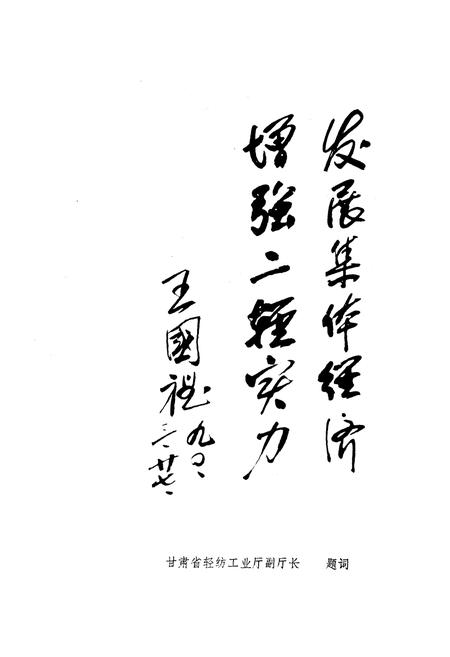 发展集体经济
增强二轻实力
王國祉
九〇、
三、廿七、
甘肃省轻纺工业厅副厅长 题词